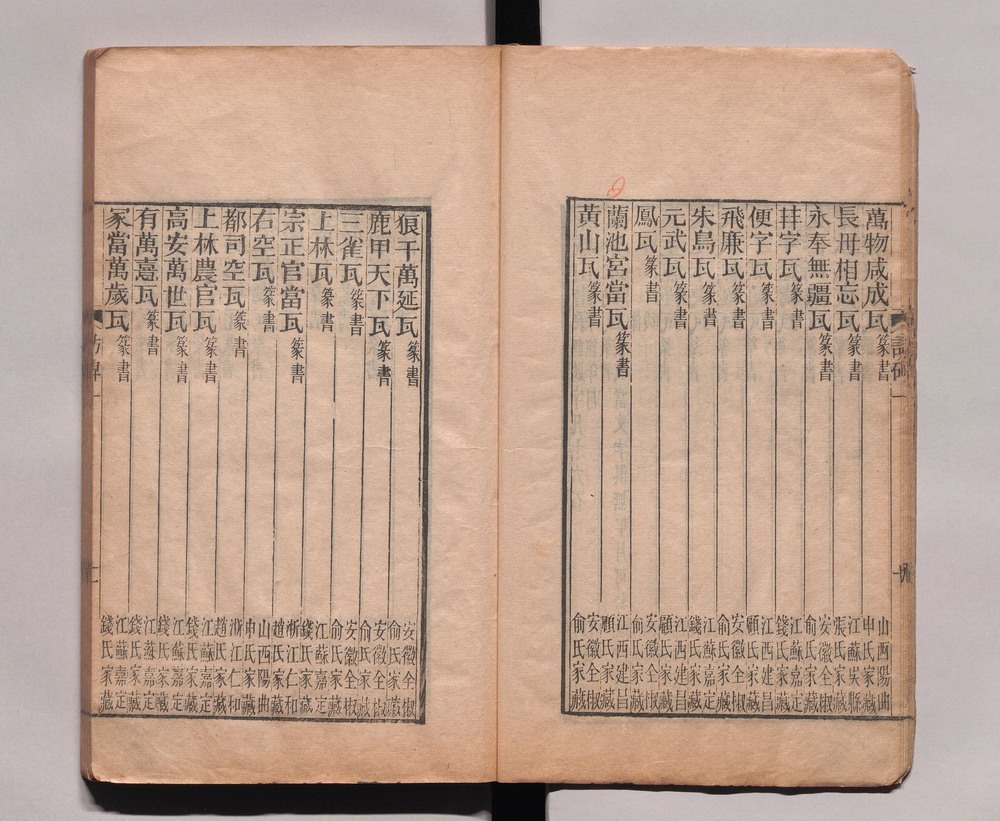 萬物咸成瓦篆書 山西陽曲申氏家藏
長毋相忘瓦篆書 江蘇吳縣張氏家藏
永奉無疆瓦篆書 安徽全椒俞氏家藏
字瓦篆書 江蘇嘉定錢氏家藏
便字瓦篆書 江西建昌顧氏家藏
飛廉瓦篆書 安徽全椒俞氏家藏
朱鳥瓦篆書 江蘇嘉定錢氏家藏
元武瓦篆書 江西建昌顧氏家藏
鳳瓦篆書 安徽全椒俞氏家藏
蘭池宮當瓦篆書 江西建昌顧氏家藏
黃山瓦篆書 安徽全椒俞氏家藏
狼干萬延瓦篆書 安徽全椒俞氏家藏
鹿甲天下瓦篆書 安徽全椒俞氏家藏
三雀瓦篆書 安徽全椒俞氏家藏
上林瓦篆書 江蘇嘉定錢氏家藏
宗正官當瓦篆書 浙江仁和趙氏家藏
右空瓦篆書 山西陽曲申氏家藏
都司空瓦篆書 浙江仁和趙氏家藏
上林農官瓦篆書 江蘇嘉定錢氏家藏
高安萬世瓦篆書 江蘇嘉定錢氏家藏
有萬憙瓦篆書 江蘇嘉定錢氏家藏
冢當萬歲瓦篆書 江蘇嘉定錢氏家藏